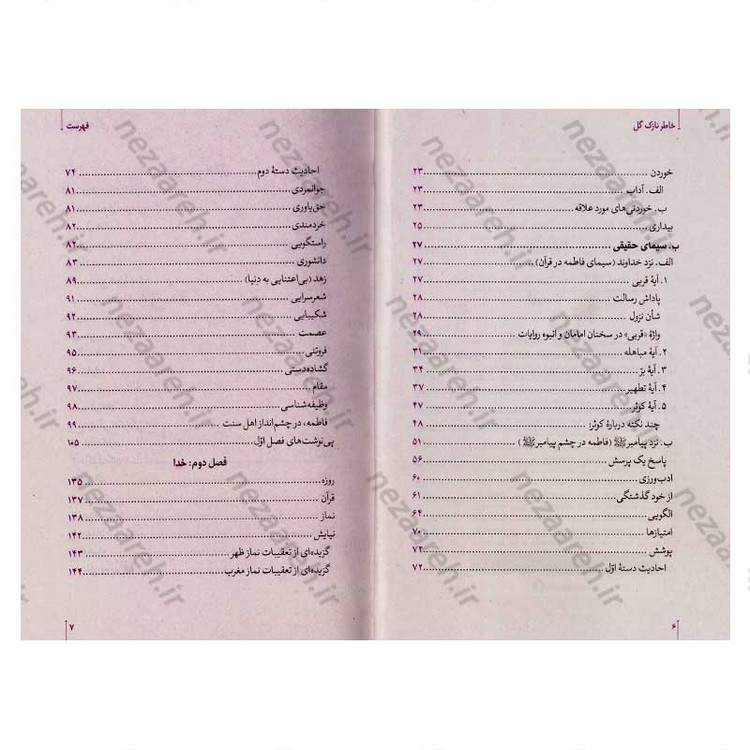 خاطر نازک گل
خوردن ........ ۲۳
الف. آداب ........ ۲۳
ب. خوردنی‌های مورد علاقه ........ ۲۳
بیداری ........ ۲۵
ب. سیمای حقیقی ........ ۲۷
الف. نزد خداوند (سیمای فاطمه در قرآن) ........ ۲۷
۱. آیهٔ قربی ........ ۲۷
پاداش رسالت ........ ۲۸
شأن نزول ........ ۲۸
واژهٔ «قربی» در سخنان امامان و انبوه روایات ........ ۲۹
۲. آیهٔ مباهله ........ ۳۱
۳. آیهٔ برّ ........ ۳۴
۴. آیهٔ تطهیر ........ ۳۷
۵. آیهٔ کوثر ........ ۴۷
چند نکته دربارهٔ کوثر: ........ ۴۸
ب. نزد پیامبر ﷺ (فاطمه در چشم پیامبر ﷺ) ........ ۵۱
پاسخ یک پرسش ........ ۵۶
ادب‌ورزی ........ ۶۰
از خود گذشتگی ........ ۶۱
الگویی ........ ۶۴
امتیازها ........ ۷۰
پوشش ........ ۷۲
احادیث دستهٔ اوّل ........ ۷۲
۶
فهرست
احادیث دستهٔ دوم ........ ۷۴
جوانمردی ........ ۸۱
حق‌یاوری ........ ۸۱
خردمندی ........ ۸۲
راستگویی ........ ۸۲
دانشوری ........ ۸۳
زهد (بی‌اعتنایی به دنیا) ........ ۸۹
شعرسرایی ........ ۹۱
شکیبایی ........ ۹۲
عصمت ........ ۹۳
فروتنی ........ ۹۵
گشاده‌دستی ........ ۹۶
مقام ........ ۹۷
وظیفه‌شناسی ........ ۹۸
فاطمه، در چشم‌انداز اهل سنت ........ ۹۹
پی‌نوشت‌های فصل اوّل ........ ۱۰۵
فصل دوم: خدا
روزه ........ ۱۳۵
قرآن ........ ۱۳۷
نماز ........ ۱۳۸
نیایش ........ ۱۴۲
گزیده‌ای از تعقیبات نماز ظهر ........ ۱۴۳
گزیده‌ای از تعقیبات نماز مغرب ........ ۱۴۴
۷
nezaareh.ir